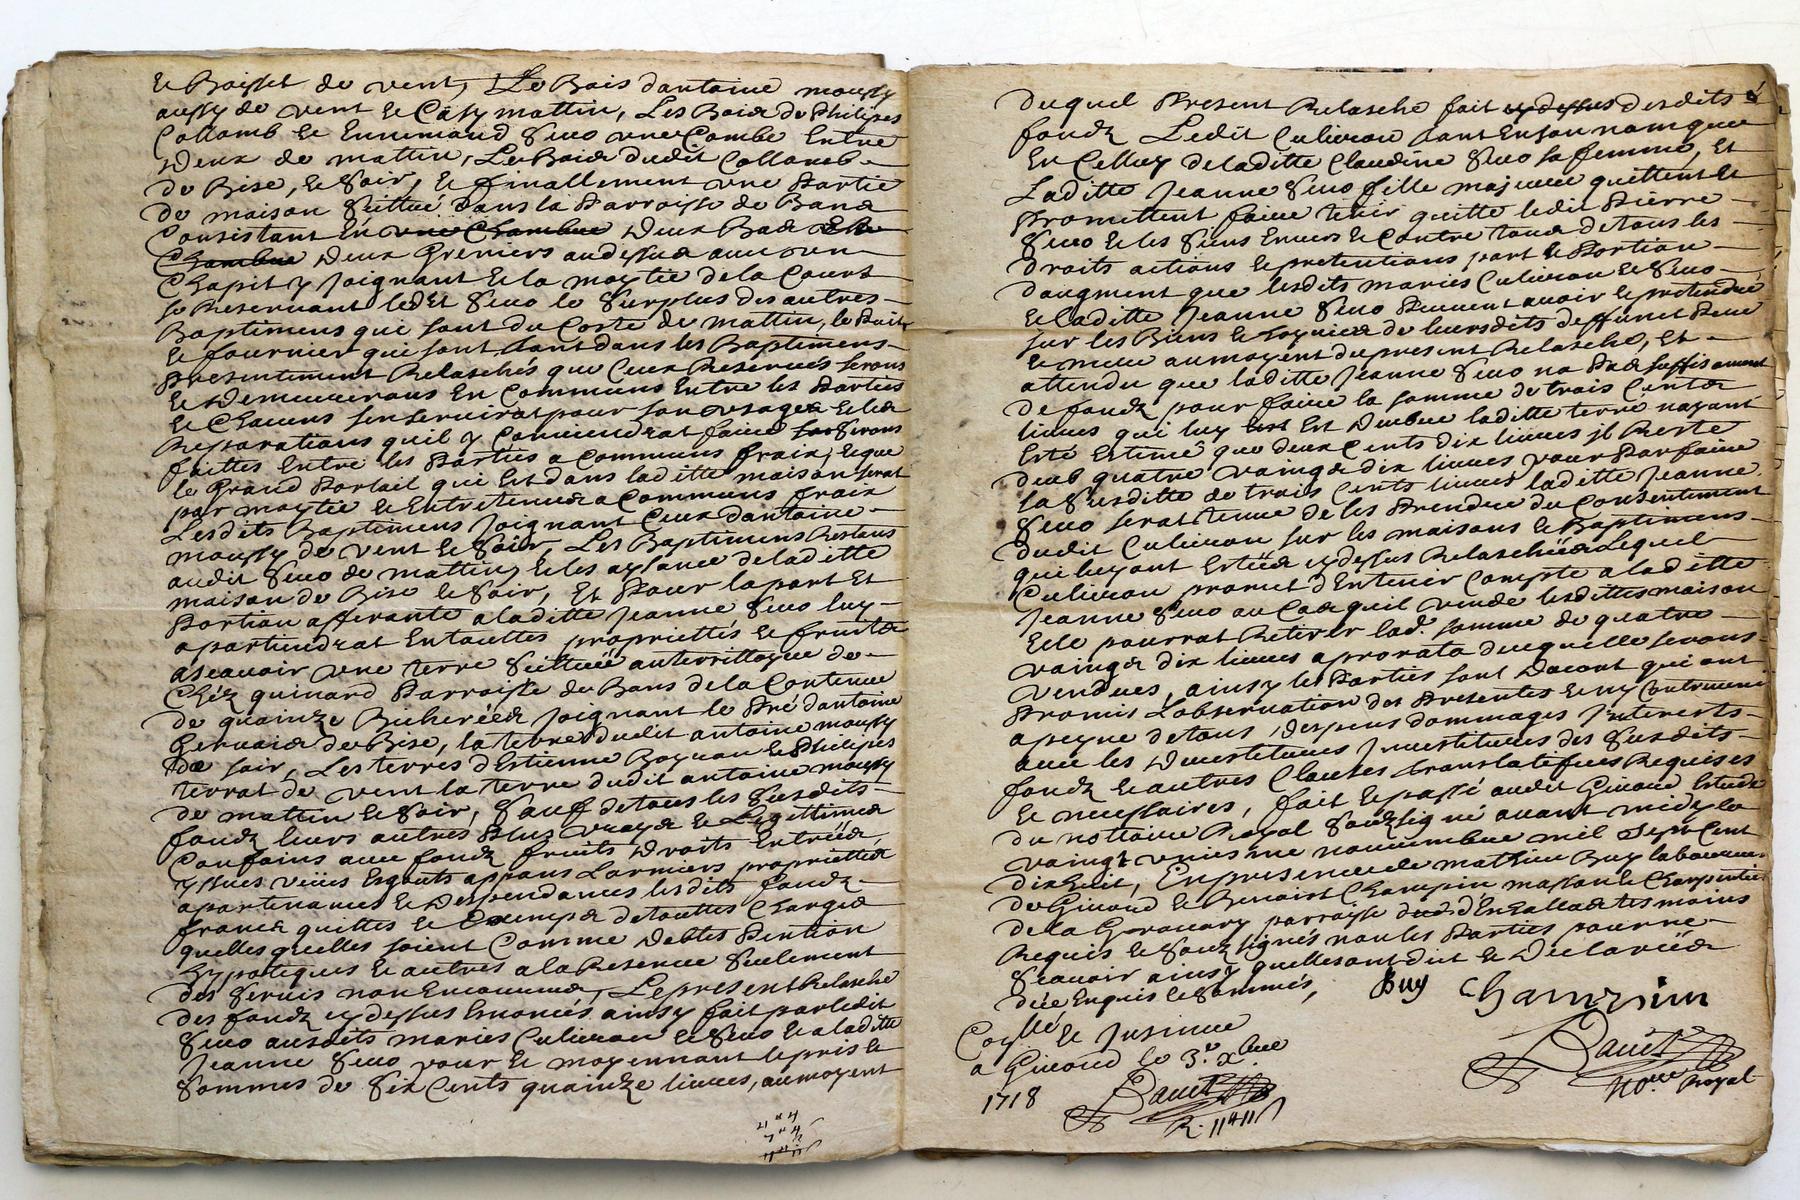 le Boisset de vent, Le Bois dantoine moussy
aussy de vent le Casy mattin, Les Bois de Philipes
Collomb et Ennemond Seuo une Combe Entre
Deux de mattin, Le Bois dudit Collomb
de Bise, et Soir, et finallement une Partie
de maison Scittué dans la Parroisse de Bans
Consistant En une Chambre Deux Bas Et la
Chambre Deux Greniers audessus auec un
Chapit y Joignant et la moytié de la Court
se Reseruant ledit Seuo le Surplus des autres
Baptimens qui sont du Costé de mattin, le Puit
le fournier qui sont dans les Baptimens
presentement Relaschés que Ceux Reserués serons
et Demeureront En Commun Entre les Parties
et Chacuns sen seruirat pour son usage et les
Reparations quil y Conuiendrat faire serons
faittes Entre les Parties a Communs fraix, et que
le Grand Portail qui Est dans laditte maison serat
par moytié et Entretenus a Communs fraix
Lesdits Baptimens Joignant Ceux dantoine
moussy de vent et Soir, Les Baptimens Restans
audit Seuo de mattin, et les aysance de laditte
maison de Bise et Soir, Et Pour la part Et
Portion afferante a laditte Jeanne Seuo luy
apartiendrat En touttes proprietés et fruits
ascauoir une terre Scittuée au territtoyre de
Chéz guinard Parroisse de Bans de la Contenue
de quainze Bicherées Joignant le Pré dantoine
Geruais de Bise, la terre dudit antoine moussy
de soir, Les terres dEstienne et Philipes
terrat de vent la terre dudit antoine moussy
de mattin et Soir, Sauf de tous les Susdits
fondz leurs autres Plus vrays et Legittimes
Confains auec fondz fruits Droits Entrées
yssues vües Esgouts proprietés
apartenances et Despendances lesdits fondz
francs quittes et Exempts de touttes Charges
quelles quelles soient Comme Debtes Pention
hypoteques et autres a la Reserue Seulement
des Seruis non Encourrus, Le present Relasche
des fondz cy dessus Enoncés ainsy fait par ledit
Seuo ausdits mariés Culieron et Seuo et a laditte
Jeanne Seuo pour et moyennant le pris et
Sommes de Six Cents quainze liures, au moyent
duquel Present Relasche fait cy dessus desdits
fondz Ledit Culieron tant En son nom que
En Celluy de laditte Claudine Seuo sa femme, Et
Laditte Jeanne Seuo fille majeure quittent et
Promettent faire tenir quitte ledit Pierre
Seuo et les Siens Enuers et Contre tous de tous les
droits actions et pretentions part et Portion
daugment que lesdits mariés Culieron et Seuo
et Laditte Jeanne Seuo Peuuent auoir et pretendre
sur les Biens et hoyries de leursdits deffunct Pere
et mere au moyent du present Relasche, Et
attendu que laditte Jeanne Seuo na Pas suffisament
de fondz pour faire la somme de trois Cents
liures qui luy Est Est Dueue laditte terre nayant
Esté Estimé que deux Cents dix liures jl Reste
quatre vaings dix liures pour Parfaire
la Susditte de trois Cents liures laditte Jeanne
Seuo serat tenue de les Prendre du Consentement
dudit Culieron sur les maisons et Baptimens
qui luy ont Estées cy dessus Relaschées Lequel
Culieron promet dEn tenir Compte a laditte
Jeanne Seuo au Cas quil vende lesdittes maison
Elle pourrat Retirer lad. somme de quatre
vaings dix liures a prorata du quelle serons
vendues, ainsy les Parties sont Dacort qui ont
Promis Lobseruation des Presentes et ny Contreuenir
a peyne de tous Despens dommages Jnterests
auec les Deuestitures Jnuestitures des Susdits
fondz et autres Clauses translatifues Requises
et necessaires, fait et passé audit Giuord Estude
du nottaire Royal Soubzsigné auant midy le
vaingt unies me nouuembre mil Sept Cent
dixhuit, En presence de mathieu Buy laboureur
de Giuord et Benoist Champin masson et Charpentier
de la parroisse dud tesmoins
Requis et Soubzsignés non les Parties pour ne
Scauoir ainsy quelles ont dit et Declarées
de ce Enquis et Sommés, Buy Champin
et Jnsinué
a Giuord le 3.e Xbre
1718
Nore Royal